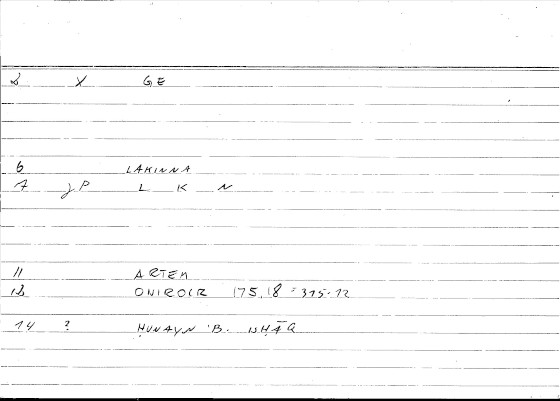 2 X GE
6 LAKINNA
7 JP L K N
11 ARTEM
12 ONIROCR 175,18 = 315-12
14 ? ḤUNAYN B. ISḤĀQ